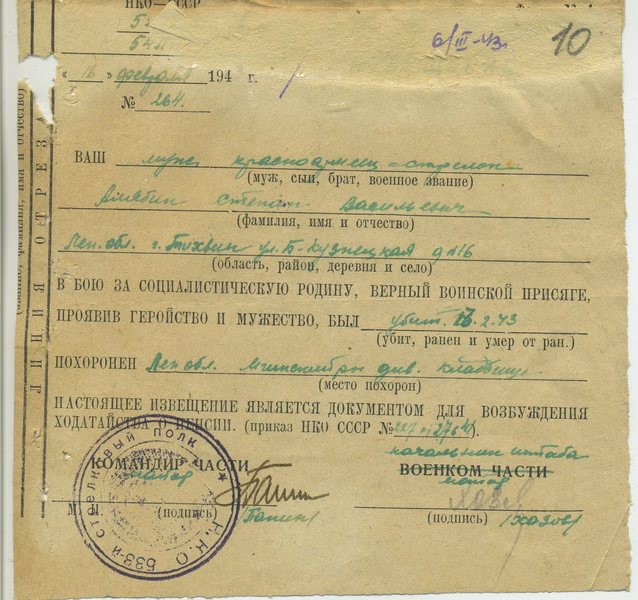 НКО—СССР
6/III-43
10
„16" февраля 194 г.
№ 264.
ВАШ муж красноармеец-стрелок
(муж, сын, брат, военное звание)
Степан Васильевич
(фамилия, имя и отчество)
Лен. обл. г. Тихвин ул. Б-Кузнецкая д №16
(область, район, деревня и село)
В БОЮ ЗА СОЦИАЛИСТИЧЕСКУЮ РОДИНУ, ВЕРНЫЙ ВОИНСКОЙ ПРИСЯГЕ,
ПРОЯВИВ ГЕРОЙСТВО И МУЖЕСТВО, БЫЛ убит 13.2.43
(убит, ранен и умер от ран.)
ПОХОРОНЕН Лен обл. Мгинский рн див. кладбище
(место похорон)
НАСТОЯЩЕЕ ИЗВЕЩЕНИЕ ЯВЛЯЕТСЯ ДОКУМЕНТОМ ДЛЯ ВОЗБУЖДЕНИЯ
ХОДАТАЙСТВА О ПЕНСИИ. (приказ НКО СССР №
начальник штаба
КОМАНДИР ЧАСТИ ВОЕНКОМ ЧАСТИ
майор
М. (подпись) Папин (подпись) /Хазов/
Н.К.О 533-й стрелковый полк
ЛИНИЯ ОТРЕЗА
фамилия, имя и отчество)